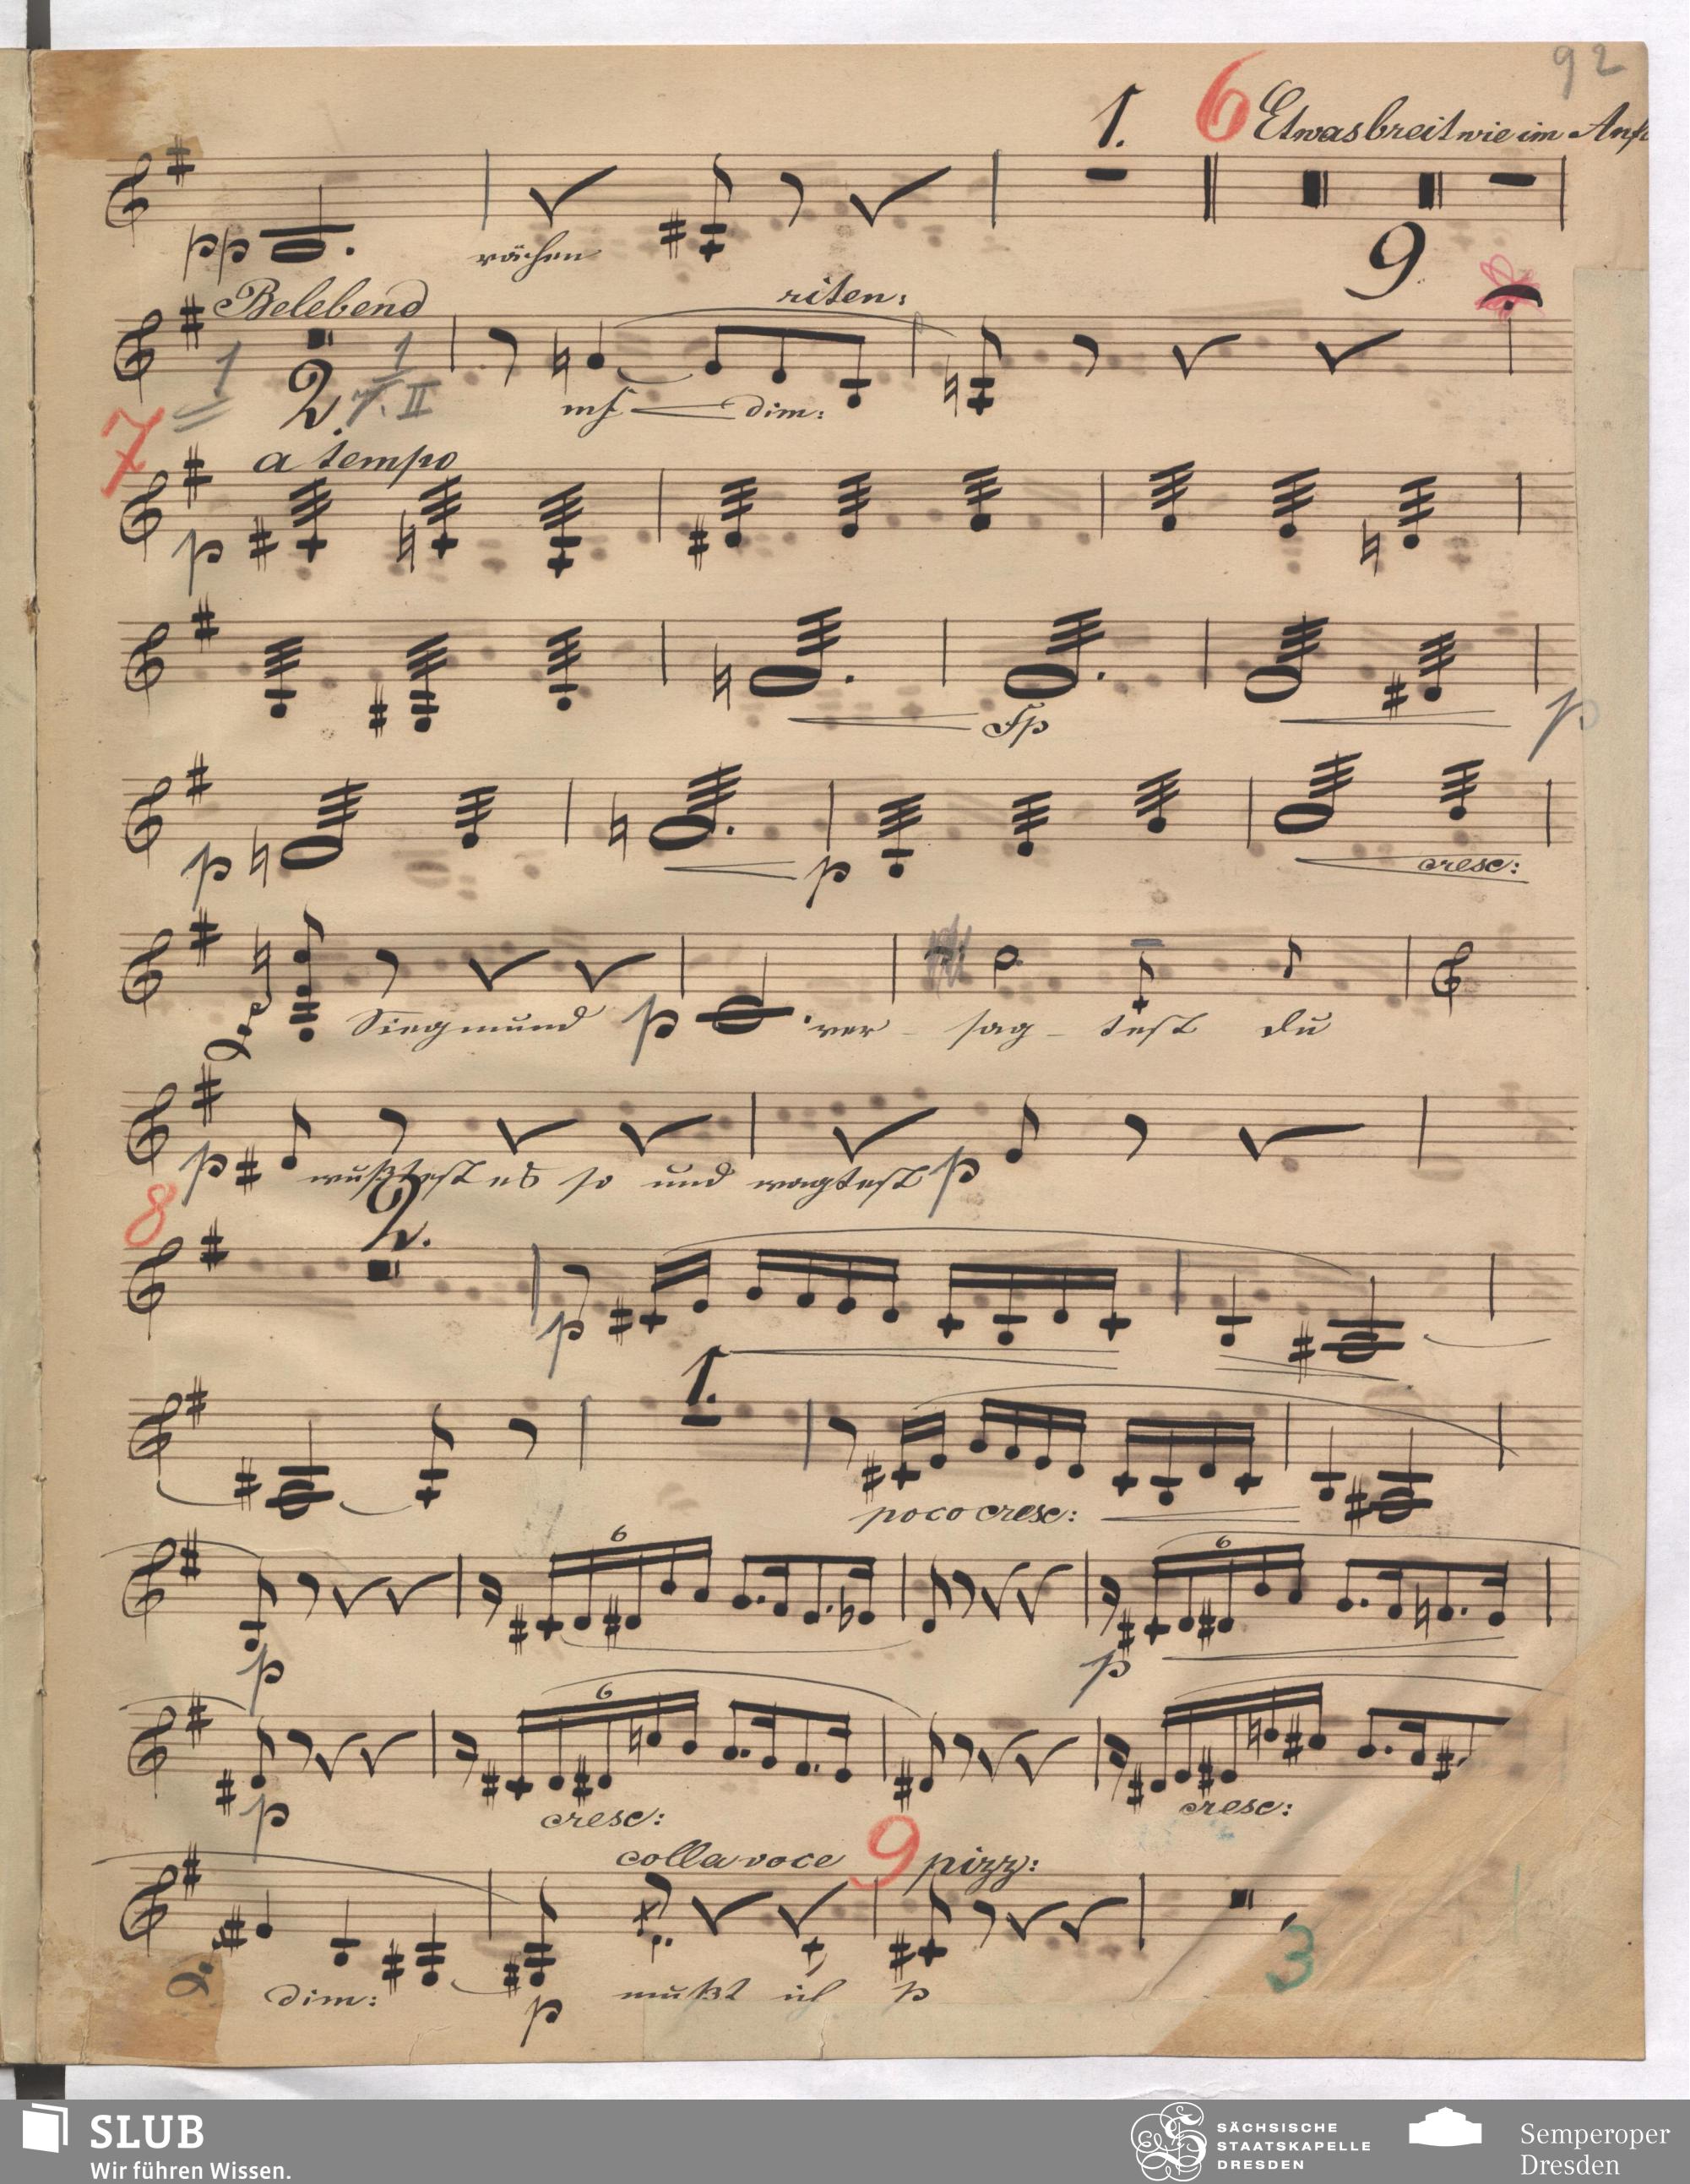 92
1. 6 Etwas breit wie im Anf
pp rächen
9
Belebend riten:
1 2 1
7. II
mf dim:
7 a tempo
p
fp p
p p cresc:
Siegmund p ver - sag - test du
p wußtest es so und wagtest p
8 2.
p
1.
poco cresc:
6 6
p p
6
p cresc: cresc:
colla voce 9 pizz:
3
dim: p mußt ich p
SLUB
Wir führen Wissen.
SÄCHSISCHE
STAATSKAPELLE
DRESDEN
Semperoper
Dresden